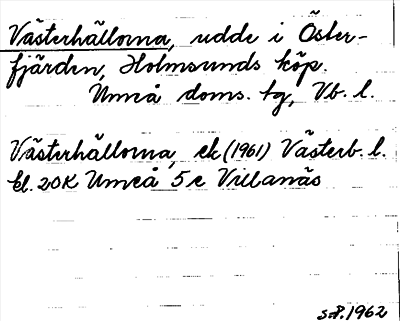 Västerhällorna, udde i Öster-
fjärden, Holmsunds köp.
Umeå doms. tg, Vb. l.
Västerhällorna, ek (1961) Västerb. l.
bl. 20K Umeå 5c Villanäs
S.P. 1962